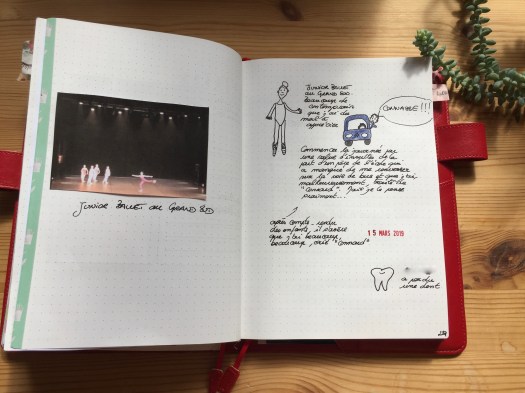 JUNIOR BALLET AU GRAND BD
JUNIOR BALLET
au GRAND BD.
beaucoup de
contemporain
que j'ai du
mal à
CONNASSE !!!
Commencer la journée par
une
fait d'un père de l'école qui
a manqué de me renverser
sur la voie de bus et que j'ai
malheureusement, traité de
"connard". Mais je le pense
vraiment...
après compte-rendu
des enfants, il s'avère
que j'ai beaucoup,
beaucoup, crié "connard"
15 MARS 2019
a perdu
une dent